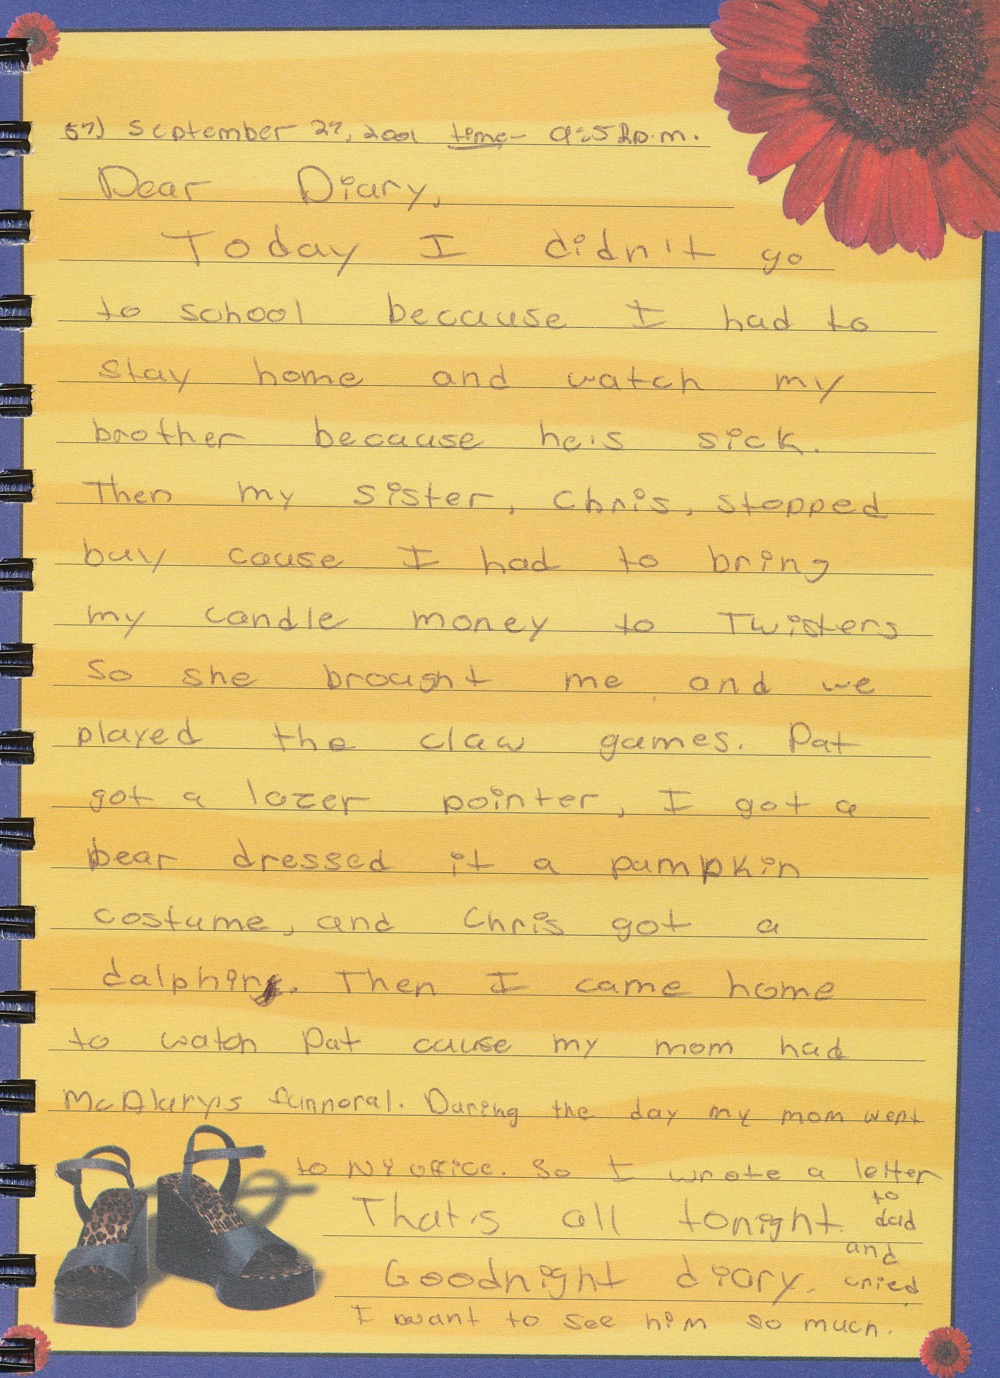 57) September 27, 2001 time- 9:52p.m.
Dear Diary,
Today I didn't go
to school because I had to
stay home and watch my
brother because he's sick.
Then my sister, Chris, stopped
buy cause I had to bring
my candle money to Twisters
So she brought me and we
played the claw games. Pat
got a lazer pointer, I got a
bear dressed it a pumpkin
costume, and Chris got a
dalphin. Then I came home
to watch Pat cause my mom had
McAlary's funnoral. During the day my mom went
to NY office. So I wrote a letter
to dad
That's all tonight.
and cried
Goodnight diary.
I want to see him so much.